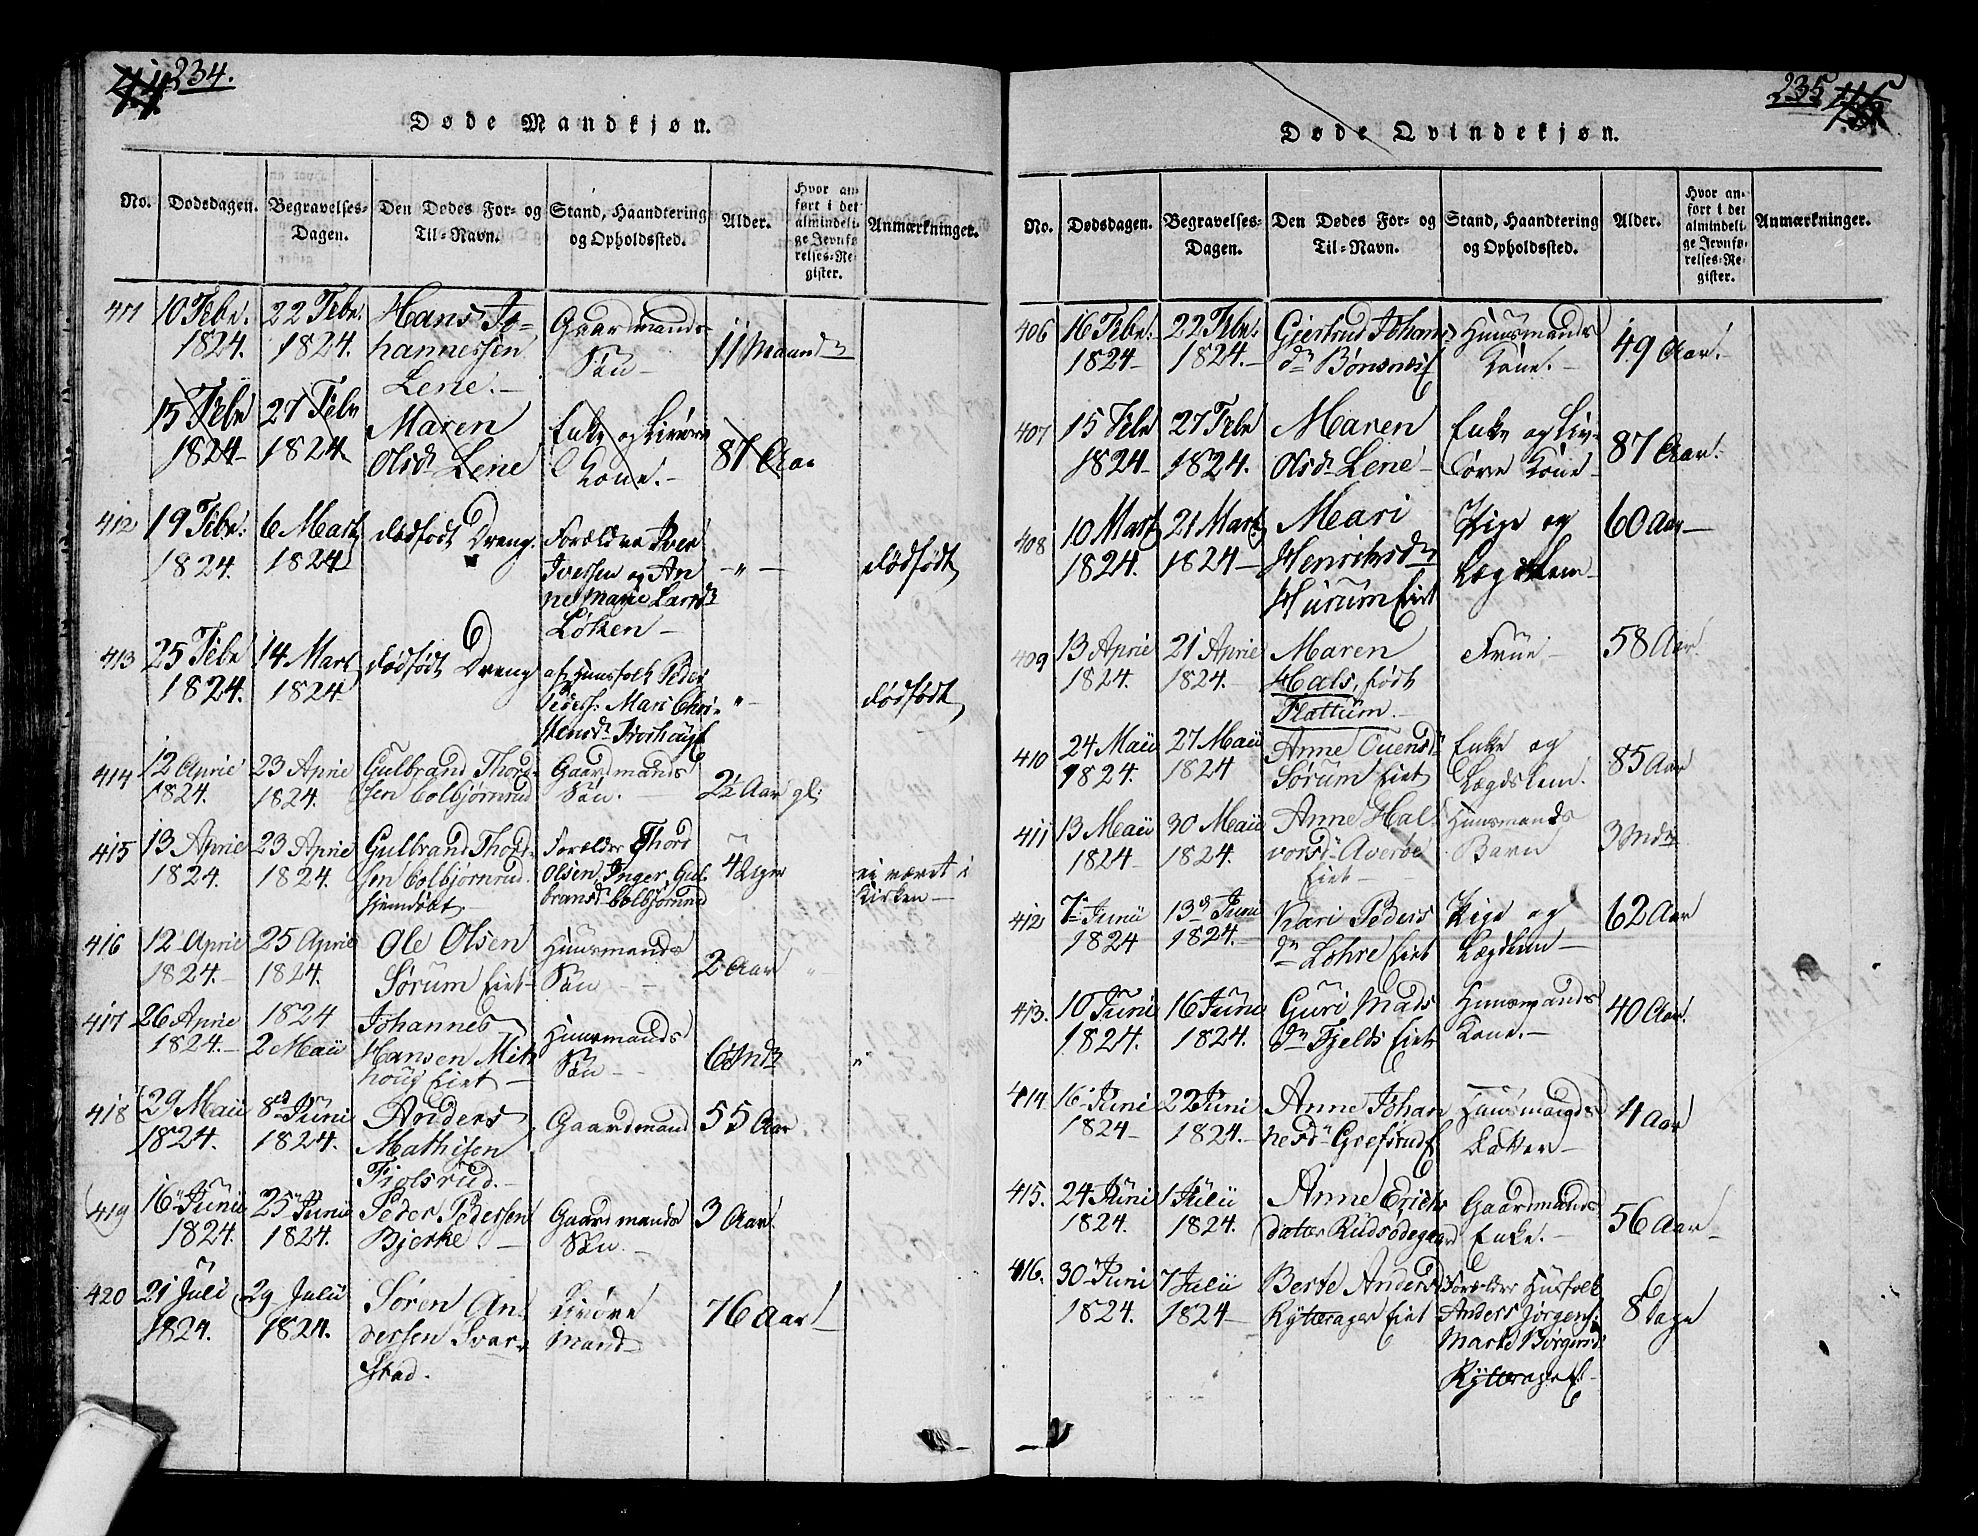 234.
Døde Mandkjøn.
No.
Dødsdagen.
Begravelses-
Dagen.
Den Dødes For- og
Til-Navn.
Stand, Haandtering
og Opholdssted.
Alder.
Hvor an-
ført i det
almindeli-
ge Jevnfø-
relses-Re-
gister.
Anmærkninger.
411
10 Febr:
1824.
22 Febr:
1824.
Hans Jo-
hannessen
Lene.-
Gaardmands
Søn-
11 Maandr
15 Febr
1824-
27 Febr
1824
Maren
Olsdr Lene
Enke og Livøre
Kone.-
87 Aar
412
19 Febr:
1824.
6 Mart
1824
dødfødt Dreng.
Forældre Iver
Iversen og An
ne Marje Larsdr
Løken-
-"-
dødfødt
413
25 Febr
1824.
14 Mart
1824
dødfødt Dreng
af Huusfolk Peder
Peders: Mari Chri-
stensdr
"-
dødfødt
414
12 April
1824.
23 April
1824.
Gulbrand Thord-
sen Colbjørnrud
Gaardmands
Søn.
2½ Aar gl:
415
13 April
1824.
23 April
1824.
Gulbrand Thord-
sen Colbjørnrud
hiemdøbt
Forælder Thord
Olsen, Inger Gul-
bransdr Colbjørnrud
4 Uger
ei været i
Kirken-
416
12 April
1824.-
25 April
1824.
Ole Olsen
Sørum Eiet-
Huusmands
Søn
2 Aar
417
26 April
1824.-
1824
2 Maii
Johannes
Hansen
houg Eiet-
Huusmands
Søn
6 Mdr
"
418
29 Maii
1824.
8de Juni
1824.
Anders
Mathisen
Fjolsrud.-
Gaardmand
55 Aar
419
16 Junii
1824.
25 Junii
1824.
Peder Pedersen
Bjerke
Gaardmands
Søn.-
3 Aar
420
21 Juli
1824.
29 Julii
1824.
Søren An-
dersen Svar-
stad.
Livøre
Mand
76 Aar
235
Døde Qvindekjøn.
No.
Dødsdagen.
Begravelses-
Dagen.
Den Dødes For- og
Til-Navn.
Stand, Haandtering
og Opholdssted.
Alder.
Hvor an-
ført i det
almindeli-
ge Jevnfø-
relses-Re-
gister.
Anmærkninger.
406
16 Febr:
1824-
22 Febr:
1824.-
Gjertrud Johans
dr Bønsnæs
Huusmands
Kone.-
49 Aar.
407
15 Febr
1824-
27 Febr
1824.
Maren
Olsdr Lene-
Enke og Liv-
øre Kone-
87 Aar.
408
10 Mart
1824.
21 Mart
1824-
Mari
Henriksdr
Hurum Eiet
Pige og
Lægdslem-
60 Aar-
409
13 April
1824.
21 April
1824.-
Maren
Hals, født
Flattum.-
Frue-
58 Aar
410
24 Maii
1824.
27 Maii
1824
Anne Ouensdr
Sørum Eiet
Enke og
Lægdslem.
85 Aar
411
13 Maii
1824-
30 Maii
1824.
Anne Hal-
vorsdr Averøe
Eiet-
Huusmands
Barn
3 Mdr
412
7 Junii
1824
13de Juni
1824.
Kari Peders
dr Lohre Eiet
Pige og
Lægdlem-
62 Aar
413.
10 Juni
1824.
16 Juni
1824.
Guri Mads
dr Fjelds Eiet
Huusmands
Kone.-
40 Aar.
414
16 Juni
1824-
22 Juni
1824.-
Anne Johan
nesdr Grefsrud
Huusmands
Datter-
4 Aar
415.
24 Juni
1824.
1 Julii
1824.
Anne Erichs
datter Rudsødegaard
Gaardmands
Enke.-
56 Aar
416.
30 Juni
1824.
7 Julii
1824-
Berte Anders
Rytterager Eiet
Forælder Husfolk
Anders Jørgens:
Marte Børgersdr
Rytterager E.
8 Dage